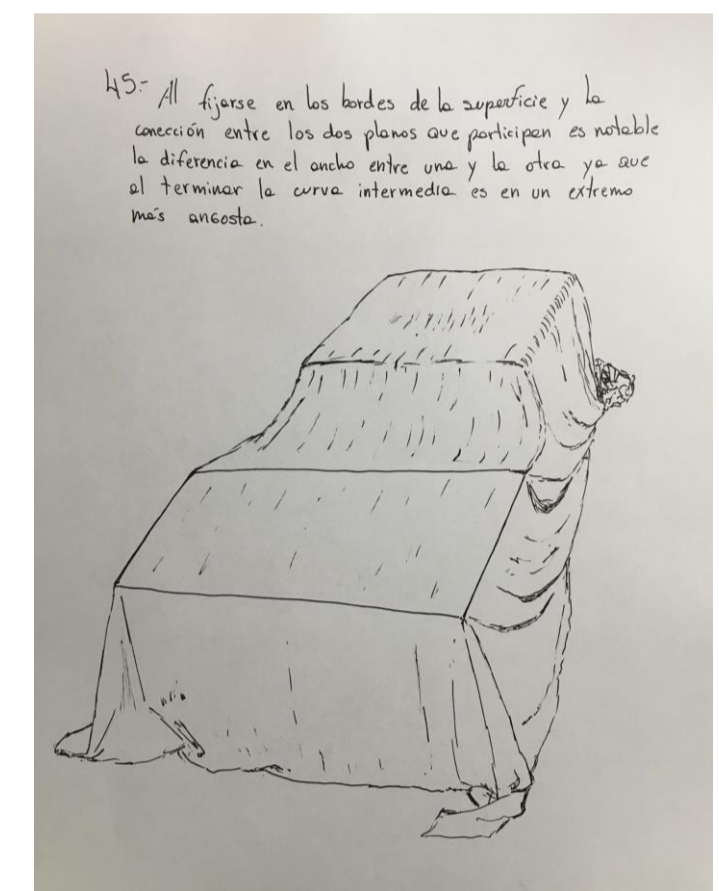 45.- Al fijarse en los bordes de la superficie y la
conección entre los dos planos que participan es notable
la diferencia en el ancho entre una y la otra ya que
al terminar la curva intermedia es en un extremo
más angosta.